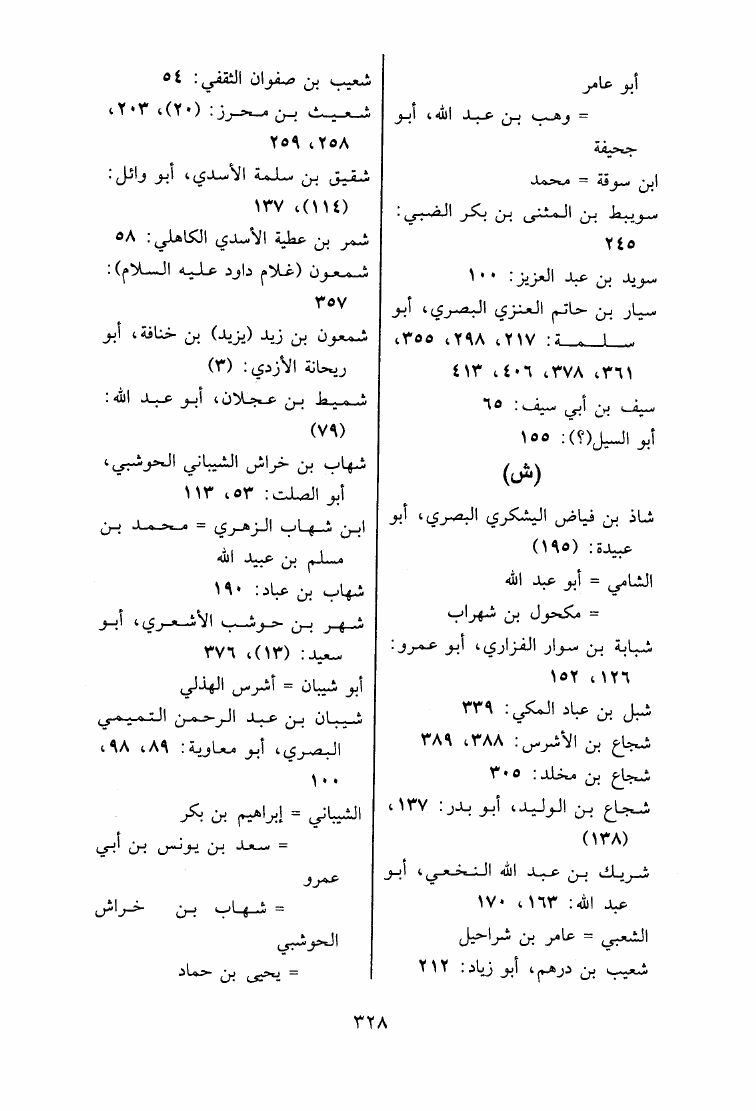 أبو عامر
= وهب بن عبد الله، أبو
جحيفة
ابن سوقة = محمد
سويبط بن المثنى بن بكر الضبي:
٢٤٥
سويد بن عبد العزيز: ١٠٠
سيار بن حاتم العنزي البصري، أبو
سلمة: ٢١٧، ٢٩٨، ٣٥٥،
٣٦١، ٣٧٨، ٤٠٦، ٤١٣
سيف بن أبي سيف: ٦٥
أبو السيل(؟): ١٥٥
(ش)
شاذ بن فياض اليشكري البصري، أبو
عبيدة: (١٩٥)
الشامي = أبو عبد الله
= مكحول بن شهراب
شبابة بن سوار الفزاري، أبو عمرو:
١٢٦، ١٥٢
شبل بن عباد المكي: ٣٣٩
شجاع بن الأشرس: ٣٨٨، ٣٨٩
شجاع بن مخلد: ٣٠٥
شجاع بن الوليد، أبو بدر: ١٣٧،
(١٣٨)
شريك بن عبد الله النخعي، أبو
عبد الله: ١٦٣، ١٧٠
الشعبي = عامر بن شراحيل
شعيب بن درهم، أبو زياد: ٢١٢
شعيب بن صفوان الثقفي: ٥٤
شعيث بن محرز: (٢٠)، ٢٠٣،
٢٥٨، ٢٥٩
شقيق بن سلمة الأسدي، أبو وائل:
(١١٤)، ١٣٧
شمر بن عطية الأسدي الكاهلي: ٥٨
شمعون (غلام داود عليه السلام):
٣٥٧
شمعون بن زيد (يزيد) بن خنافة، أبو
ريحانة الأزدي: (٣)
شميط بن عجلان، أبو عبد الله:
(٧٩)
شهاب بن خراش الشيباني الحوشبي،
أبو الصلت: ٥٣، ١١٣
ابن شهاب الزهري = محمد بن
مسلم بن عبيد الله
شهاب بن عباد: ١٩٠
شهر بن حوشب الأشعري، أبو
سعيد: (١٣)، ٣٧٦
أبو شيبان = أشرس الهذلي
شيبان بن عبد الرحمن التميمي
البصري، أبو معاوية: ٨٩، ٩٨،
١٠٠
الشيباني = إبراهيم بن بكر
= سعد بن يونس بن أبي
عمرو
= شهاب بن خراش
الحوشبي
= يحيى بن حماد
٣٢٨